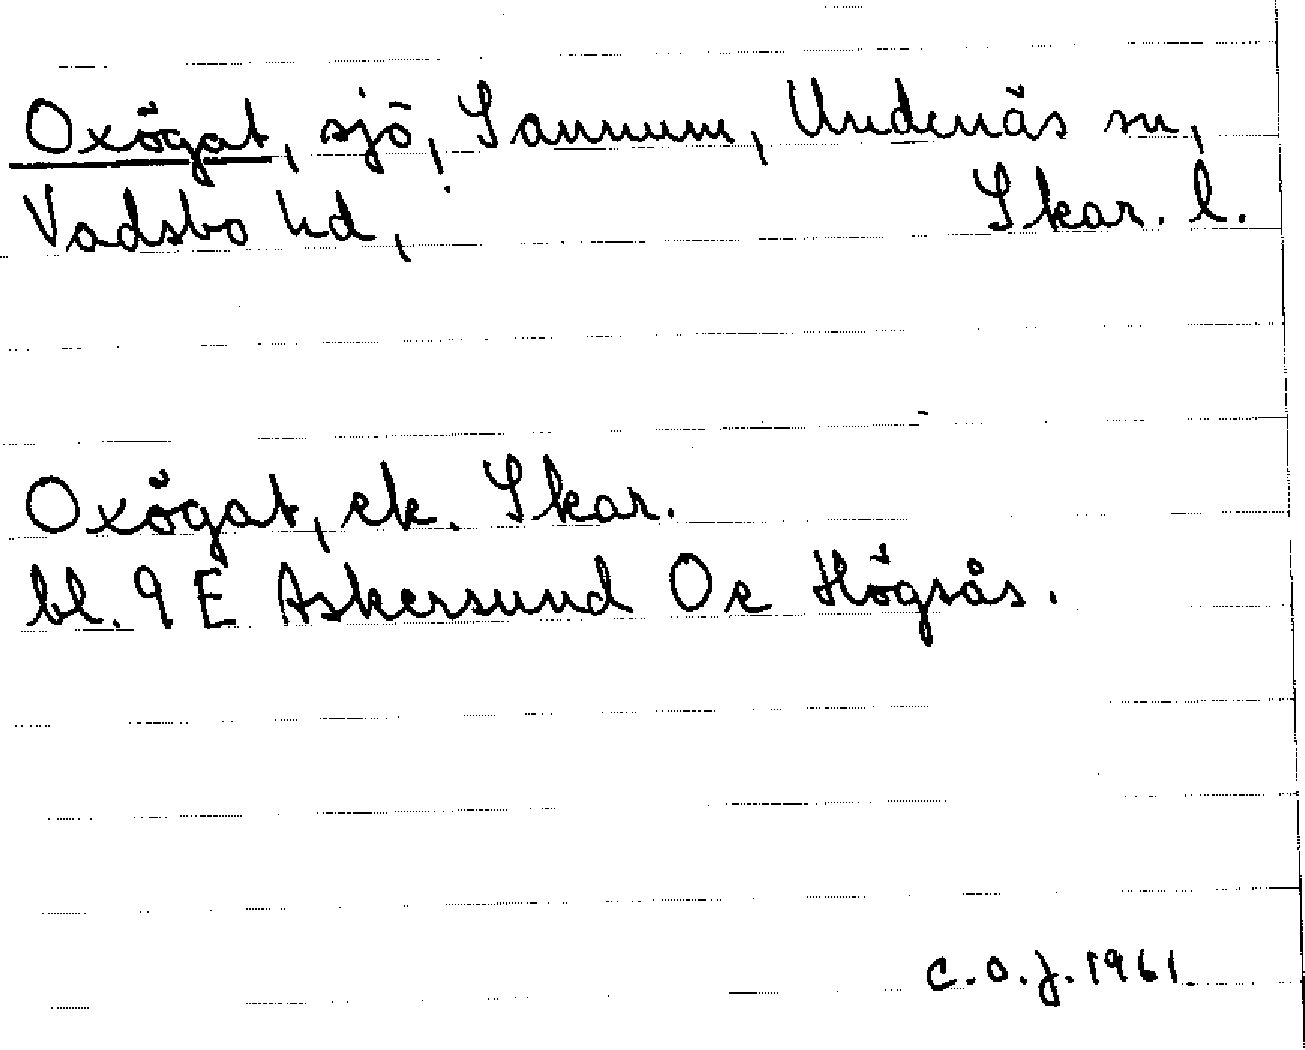 Oxögat, sjö, Sannum, Undenäs sn,
Vadsbo hd, Skar. l.
Oxögat, ek. Skar.
bl. 9 E Askersund Oe Högsås.
C.O.J. 1961.